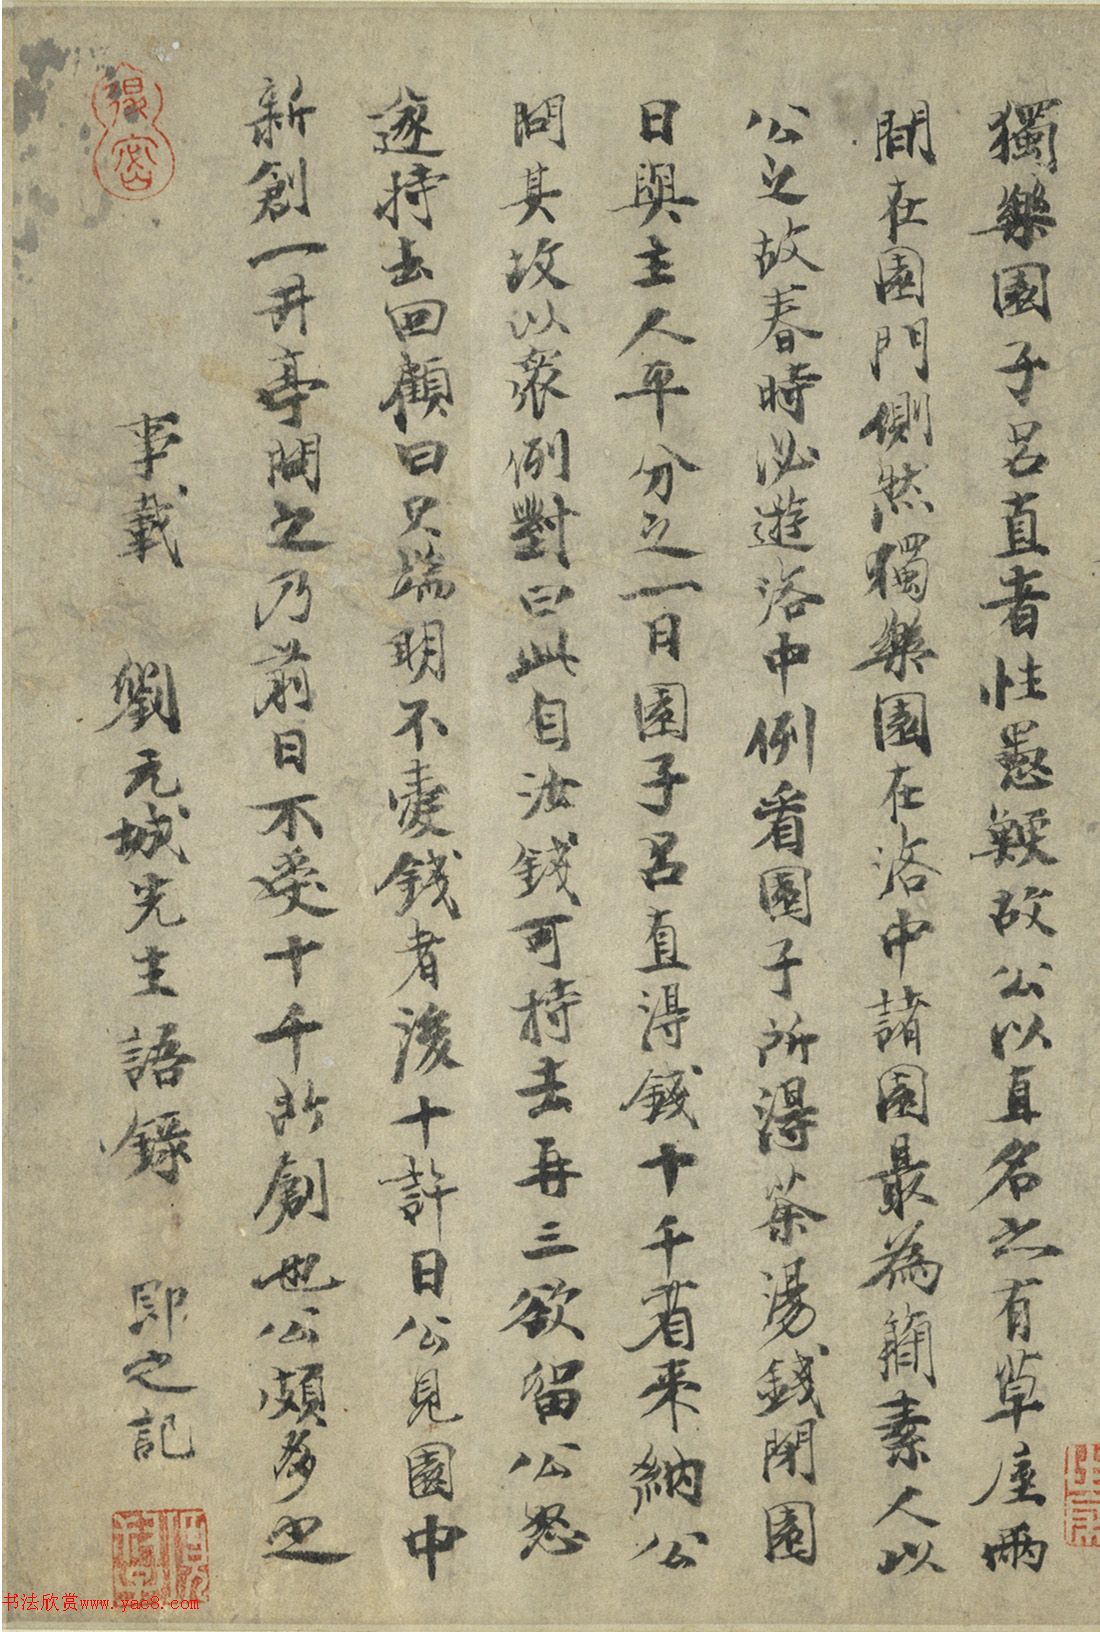 獨樂園子呂直者性愚鯁故公以直名之有草屋兩
間在園門側然獨樂園在洛中諸園最為簡素人以
公之故春時必遊洛中例看園子所得茶湯錢閉園
日與主人平分之一日園子呂直得錢十千省来納公
問其故以衆例對曰此自汝錢可持去再三欲留公怒
遂持去回顧曰只端明不愛錢者後十許日公見園中
新創一井亭問之乃前日不受十千所創也公頗多之
事載 劉元城先生語錄 即之記
書法欣賞www.yac8.com